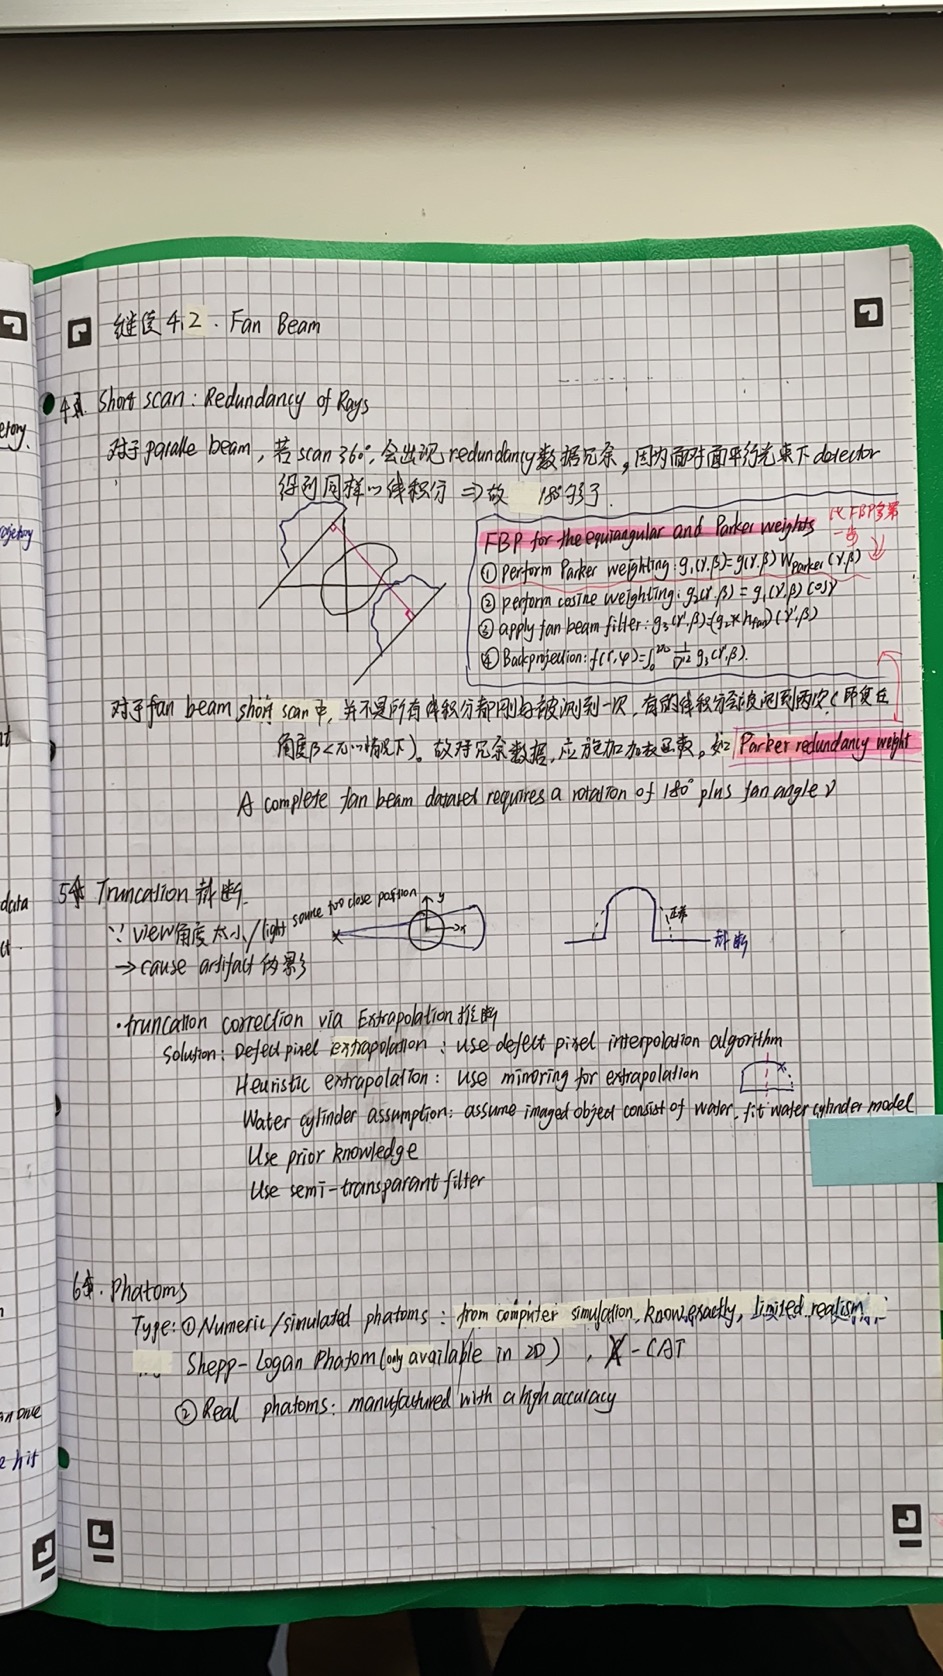 erory.
ojectory
nt
data
ct.
an one
e hit
继续4.2. Fan Beam
4章. Short scan: Redundancy of Rays
对于paralle beam, 若scan 360°, 会出现redundancy数据冗余。因为面对面平行光束下detector
得到同样的线积分 ⇒ 故 180°够了.
FBP for the equiangular and Parker weights
比FBP多第一步
① perform Parker weighting: g₁(γ,β)=g(γ,β) W_Parker(γ,β)
② perform cosine weighting: g₂(γ,β) = g₁(γ,β) cosγ
③ apply fan beam filter: g₃(γ',β)=(g₂*h_fan)(γ',β)
④ Backprojection: f(r,φ)=∫ 1/D'² g₃(γ',β).
对于fan beam short scan中, 并不是所有线积分都刚好被测到一次, 有的线积分会被测到两次(
角度β<π的情况下)。故对冗余数据, 应施加加权函数。如 Parker redundancy weight
A complete fan beam dataset requires a rotation of 180° plus fan angle γ
5章 Truncation 截断.
∵ view角度太小/light source too close position
→ cause artifact 伪影
y
x
正常
截断
·truncation correction via Extrapolation推断
Solution: Defect pixel extrapolation: use defect pixel interpolation algorithm
Heuristic extrapolation: use mirroring for extrapolation
Water cylinder assumption: assume imaged object consist of water. fit water cylinder model
Use prior knowledge
Use semi-transparant filter
6章. Phatoms
Type: ① Numeric/simulated phatoms: from computer simulation, known exactly, limited realism.
Shepp-Logan Phatom (only available in 2D), X-CAT
② Real phatoms: manufactured with a high accuracy